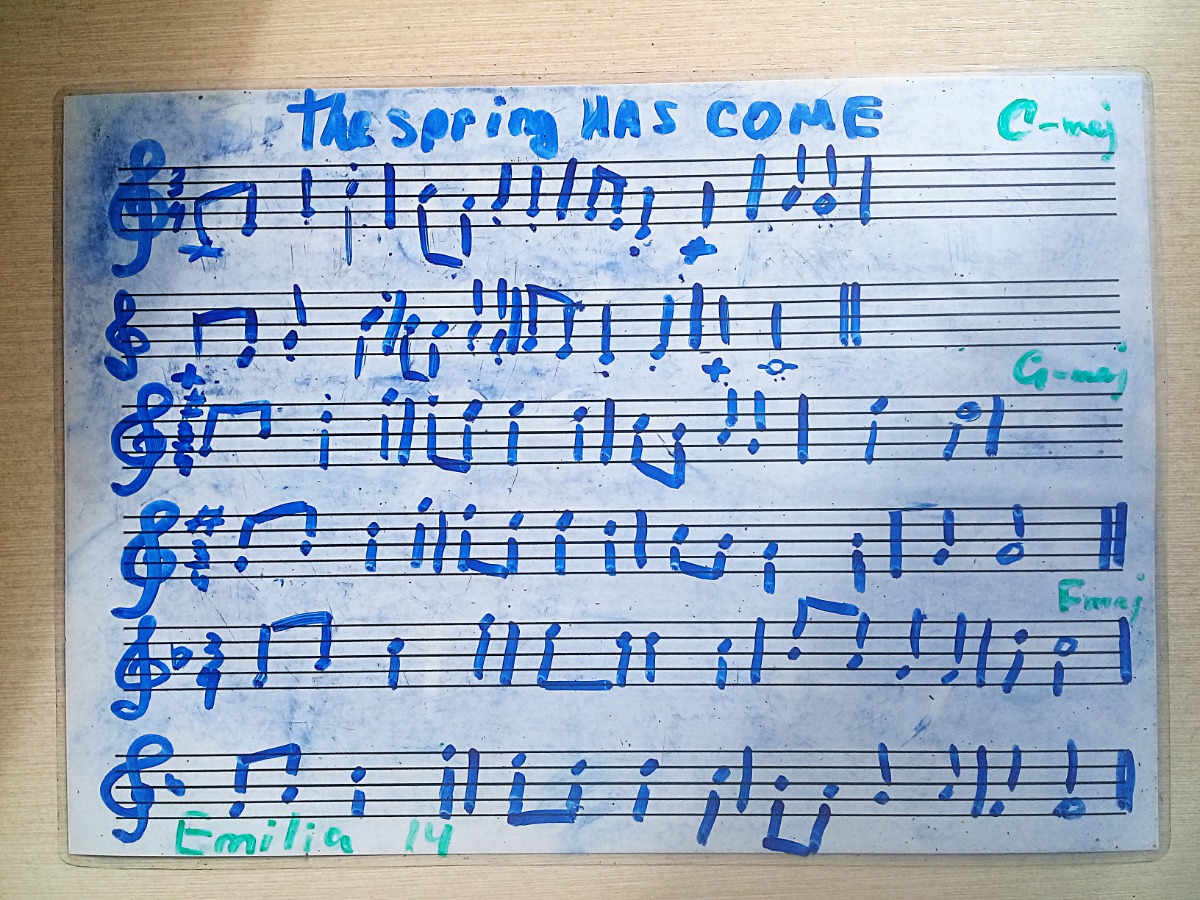 The spring HAS COME
C-maj
3
4
G-maj
F maj
3
4
Emilia 14